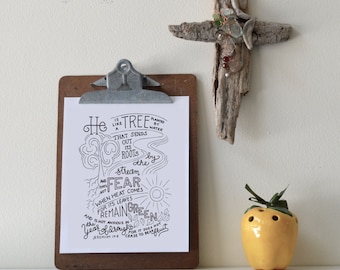 He IS LIKE A TREE PLANTED BY WATER
THAT SENDS
OUT
ITS
ROOTS by
the
stream
AND DOES NOT FEAR
WHEN HEAT COMES
FOR ITS LEAVES
REMAIN GREEN
AND IS NOT ANXIOUS IN THE
year of drought
FOR IT DOES NOT
CEASE TO BEAR FRUIT